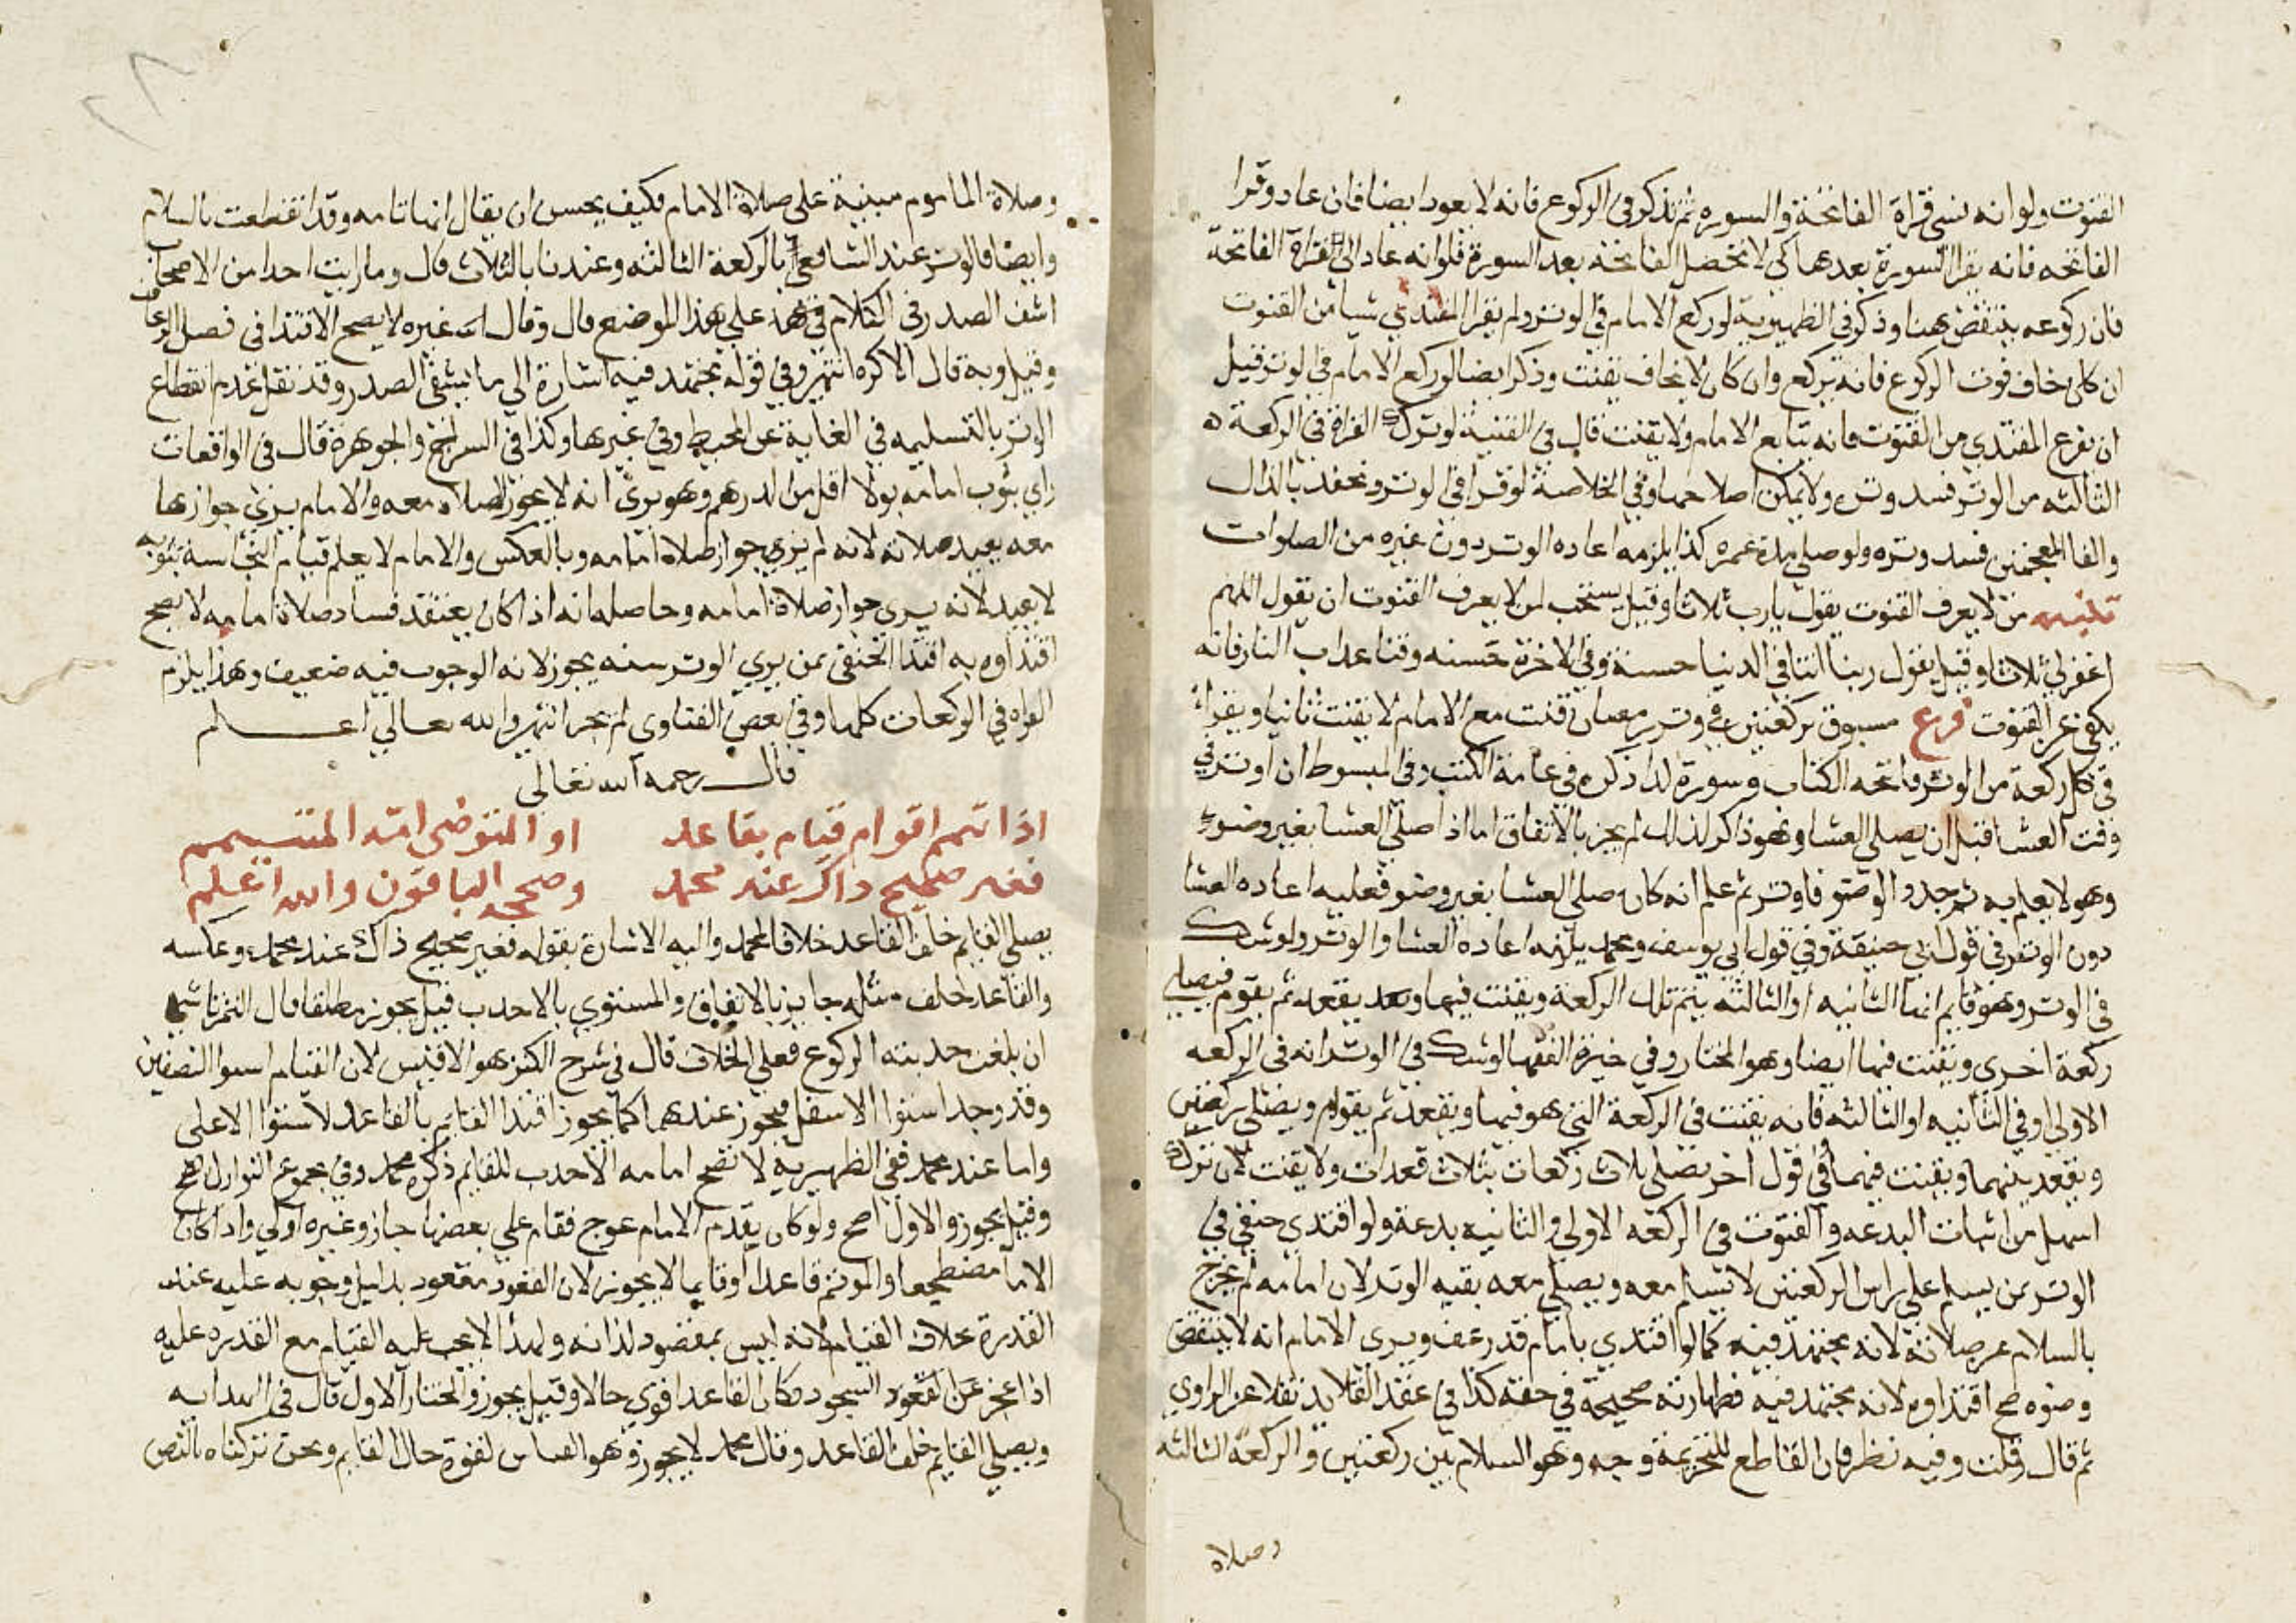 القنوت ولو انه نسي قراة الفاتحة والسوره ثم تذكر في الركوع فانه لا يعود ايضا فان عاد وقرا
الفاتحه فانه يقرا السورة بعدها كي لا تحصل الفاتحة بعد السورة فلو انه عاد الى قراة الفاتحة
فان ركوعه ينتقض هنا وذكر في الظهيرية لو ركع الامام في الوتر ولم يقرا المقتدي شيا من القنوت
ان كان خاف فوت الركوع فانه يركع وان كان لا يخاف يقنت وذكر ايضا لو ركع الامام في الوتر قبل
ان يفرع المقتدي من القنوت فانه يتابع الامام ولا يقنت قال في القنية لو ترك القراة في الركعة
الثالثه من الوتر فسد وتره ولا يمكن اصلاحها وفي الخلاصة لو قرا في الوتر ونحفد بالذال
والفا المعجمتين فسد وتره ولو صلي مدة عمره كذا يلزمه اعاده الوتر دون غيره من الصلوات
تنبيه من لا يعرف القنوت يقول يارب ثلاثا وقيل يستحب لمن لا يعرف القنوت ان يقول اللهم
اغفر لي ثلاثا وقيل يقول ربنا اتنا في الدنيا حسنة وفي الاخرة حسنه وقنا عذاب النار فانه
يكفي عن القنوت فرع مسبوق بركعتين في وتر رمضان قنت مع الامام لا يقنت ثانيا ويقرا
في كل ركعة من الوتر فاتحه الكتاب وسورة لذا ذكره في عامة الكتب وفي المبسوط ان اوتر في
وقت العشا قبل ان يصلي العشا وهو ذاكر لذلك لم يجز بالاتفاق اما اذا صلي العشا بغير وضو
وهو لا يعلم به ثم جدد الوضو فاوتر ثم علم انه كان صلي العشا بغير وضو فعليه اعاده العشا
دون الوتر في قول ابي حنيفة وفي قول ابي يوسف ومحمد يلزمه اعاده العشا والوتر ولو شك
في الوتر وهو قايم انها الثانيه او الثالثة يتم تلك الركعة ويقنت فيها وبعد يقعد ثم يقوم فيصلي
ركعة اخري ويقنت فيها ايضا وهو المختار وفي خيرة الفقها لو شك في الوتر انه في الركعه
الاولي او في الثانيه او الثالثه فانه يقنت في الركعة التي هو فيها ويقعد ثم يقوم ويصلي ركعتين
ويقعد بينهما ويقنت فيهما وفي قول اخر يصلي ثلاث ركعات بثلاث قعدات ولا يقنت لان ترك
اسهل من اثبات البدعه والقنوت في الركعه الاولي والثانيه بدعة ولو اقتدي حنفي في
الوتر بمن يسلم علي راس الركعتين لا يسلم معه ويصلي معه بقيه الوتر لان امامه لم يخرج
بالسلام عن صلاته لانه مجتهد فيه كما لو اقتدي بامام قد رعف ويري الامام انه لا ينتقض
وضوه صح اقتداوه لانه مجتهد فيه فطهارته صحيحة في حقه كذا في عقد القلايد نقلا عن الراوي
ثم قال وقلت وفيه نظر فان القاطع للتحريمة وجه وهو السلام بين ركعتين والركعه الثالثه
وصلاة
وصلاة الماموم مبنية علي صلاة الامام فكيف يحسن ان يقال انها تامه وقد انقطعت بالسلام
وايضا فالوتر عند الشافعي بالركعة الثالثه وعندنا بالثلاث قال وما رايت احدا من الاصحاب
اشف الصدر في الكلام في هذا علي هذا الموضع قال وقال غيره لا يصح الاقتدا في فصل الرعاف
وقيل وبه قال الاكره انتهي وفي قوله مجتهد فيه اشارة الي ما يشفي الصدر وقد نقل عدم انقطاع
الوتر بالتسليمه في الغاية عن المحيط وفي غيرها وكذا في السراج والجوهرة قال في الواقعات
راي بثوب امامه بولا اقل من الدرهم وهو يري انه لا يجوز الصلاه معه والامام يري جوازها
معه يعيد صلاته لانه لم يري جواز صلاة امامه وبالعكس والامام لا يعلم قيام النجاسة بثوبه
لا يعيد لانه يري جواز صلاة امامه وحاصله انه اذا كان يعتقد فساد صلاة امامه لا يصح
اقتداوه به اقتدا الحنفي بمن يري الوتر سنه يجوز لانه الوجوب فيه ضعيف وهذا يلزم
القراه في الركعات كلها وفي بعض الفتاوي لم يجز انتهي والله تعالي اعلم
قال رحمه الله تعالي
اذا تمم اقوام قيام بقاعد او المتوضي امه المتيمم
فغير صحيح ذاك عند محمد وصححه الباقون والله اعلم
يصلي القايم خلف القاعد خلافا لمحمد واليه الاشارة بقوله فغير صحيح ذاك عند محمد وعكسه
والقاعد خلف مثله جايز بالاتفاق والمستوي بالاحدب قيل يجوز مطلقا قال التمرتاشي
ان بلغت حدبته الركوع فعلي الخلاف قال في شرح الكنز هو الاقيس لان القيام استوا النصفين
وقد وجد استوا الاسفل فيجوز عندهما كما يجوز اقتدا القايم بالقاعد لاستوا الاعلي
واما عند محمد ففي الظهيرية لا تصح امامه الاحدب للقايم ذكره محمد وفي مجموع النوازل تصح
وقيل يجوز والاول اصح ولو كان بقدم الامام عوج فقام علي بعضها جاز وغيره اولي واذا كان
الامام مضطجعا والموتم قاعدا او قايما لا يجوز لان القعود مقعود بدليل وجوبه عليه عند
القدرة بخلاف القيام لانه ليس بمقصود لذاته ولهذا لا يجب عليه القيام مع القدره عليه
اذا عجز عن القعود السجود فكان القاعد اقوي حالا وقيل يجوز والمختار الاول قال في الهدايه
ويصلي القايم خلف القاعد وقال محمد لا يجوز وهو القياس لقوة حال القايم ونحن تركناه بالنص